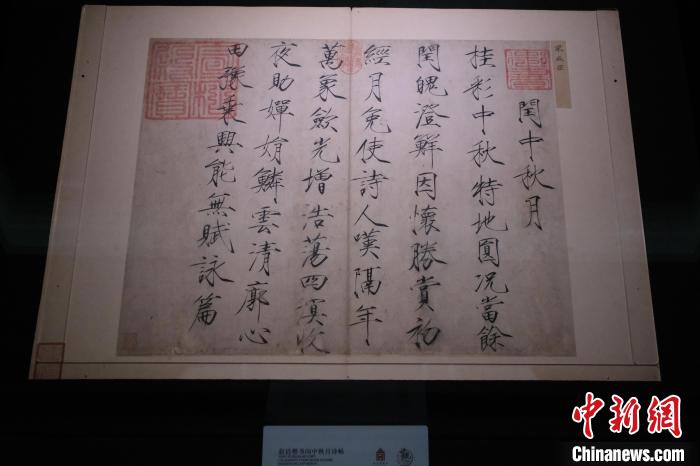 閏中秋月
桂彩中秋特地圓況當餘
閏魄澄鮮因懷勝賞初
經月免使詩人嘆隔年
萬象歛光增浩蕩四溟收
夜助嬋娟鱗雲清廓心
田豫乘興能無賦詠篇
赵佶楷书闰中秋月诗帖
中新网
Chinanews.com